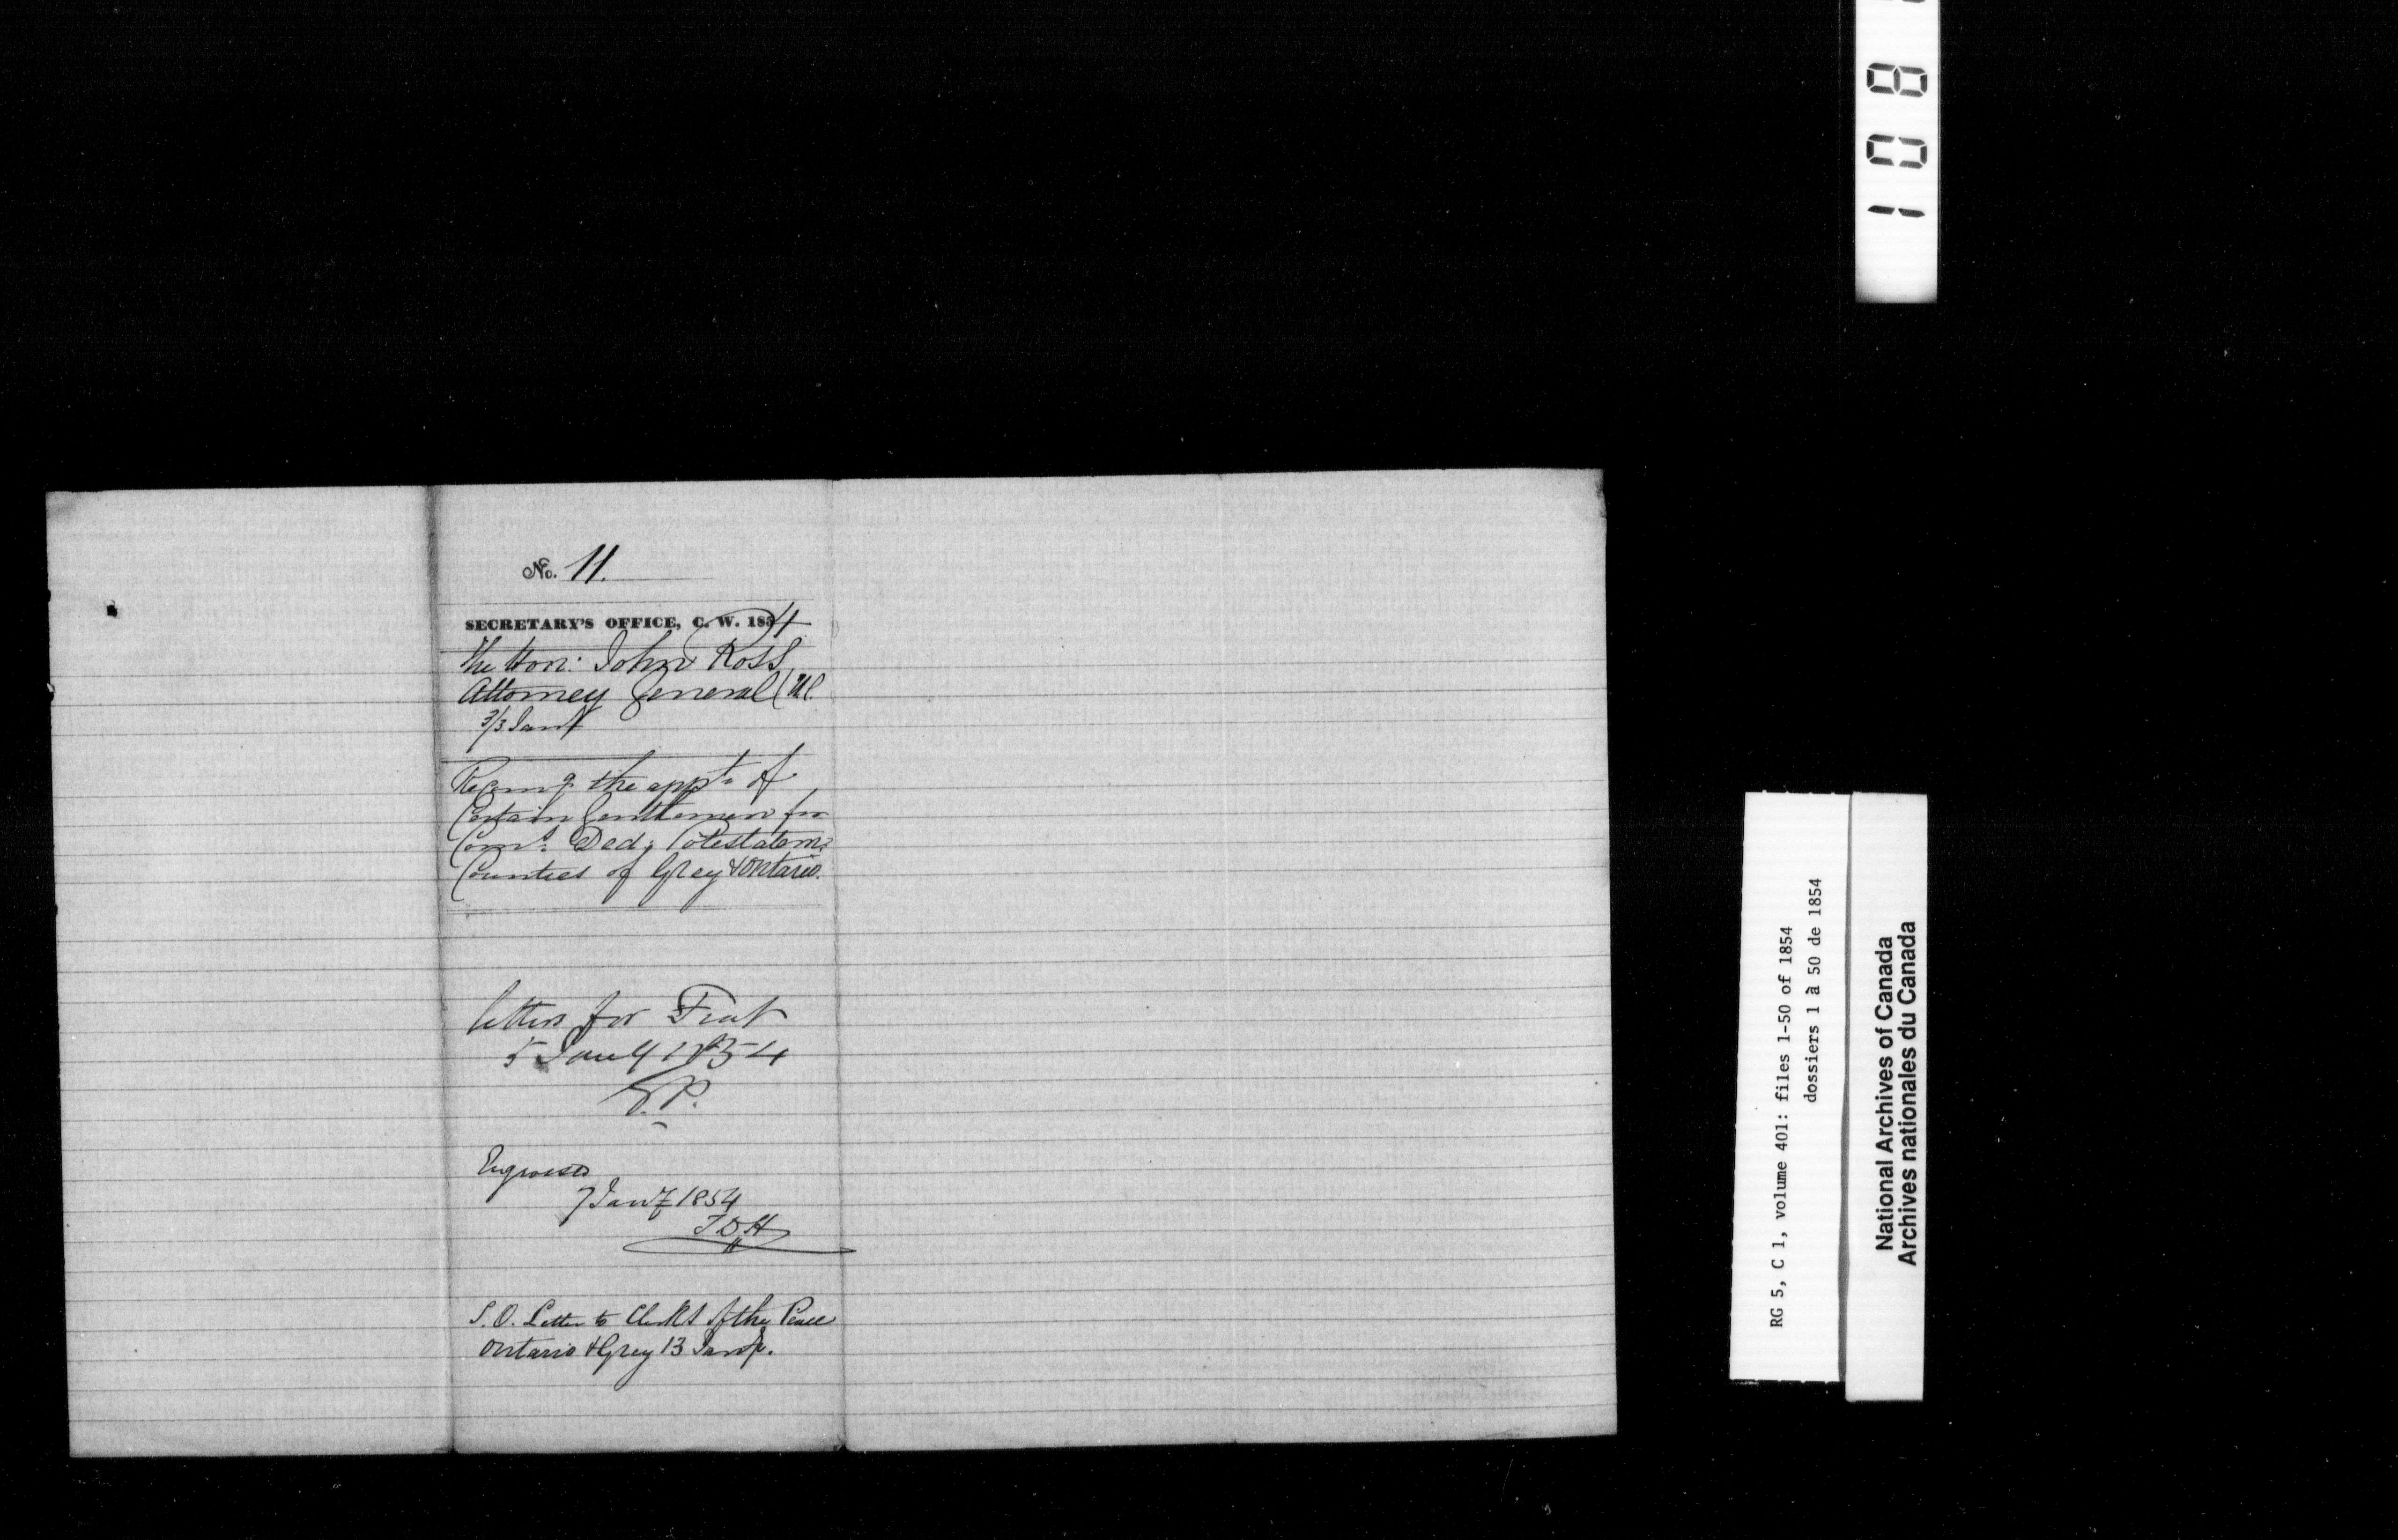 No. 11.
SECRETARY'S OFFICE, C. W. 1854
The Hon: John Ross
Attorney General (U.C.
3/3 Jany
Recomg the appt. of
Certain Gentlemen for
Coms. Ded: Potestatem:
Counties of Grey & Ontario.
Letters for Fiat
5 Jany 1854
E.P.
Engrossed
7 Jany 1854
T D H
S. O. Letter to Clerks of the Peace
Ontario & Grey 13 Jany.
108
RG 5, C 1, volume 401: files 1-50 of 1854
dossiers 1 à 50 de 1854
National Archives of Canada
Archives nationales du Canada